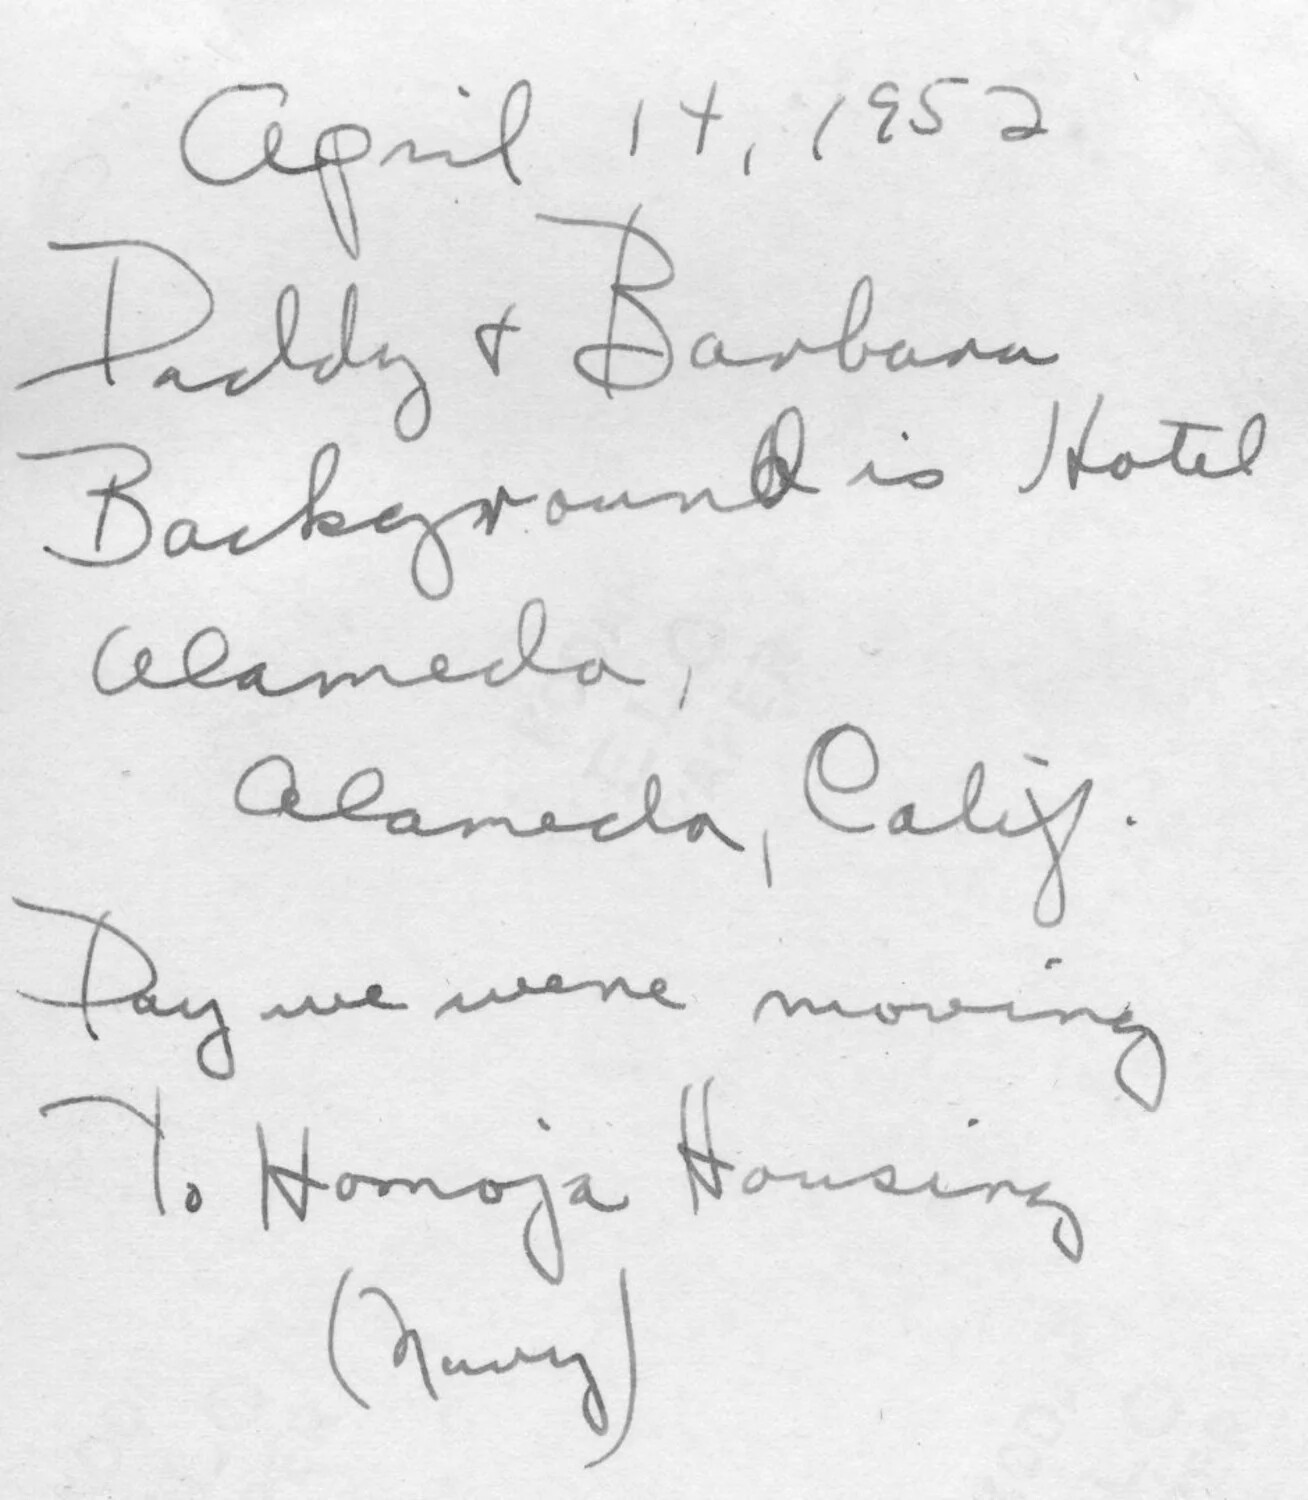 April 14, 1952
Daddy + Barbara
Background is Hotel
Alameda,
Alameda, Calif.
Day we were moving
To Homoja Housing
(Navy)